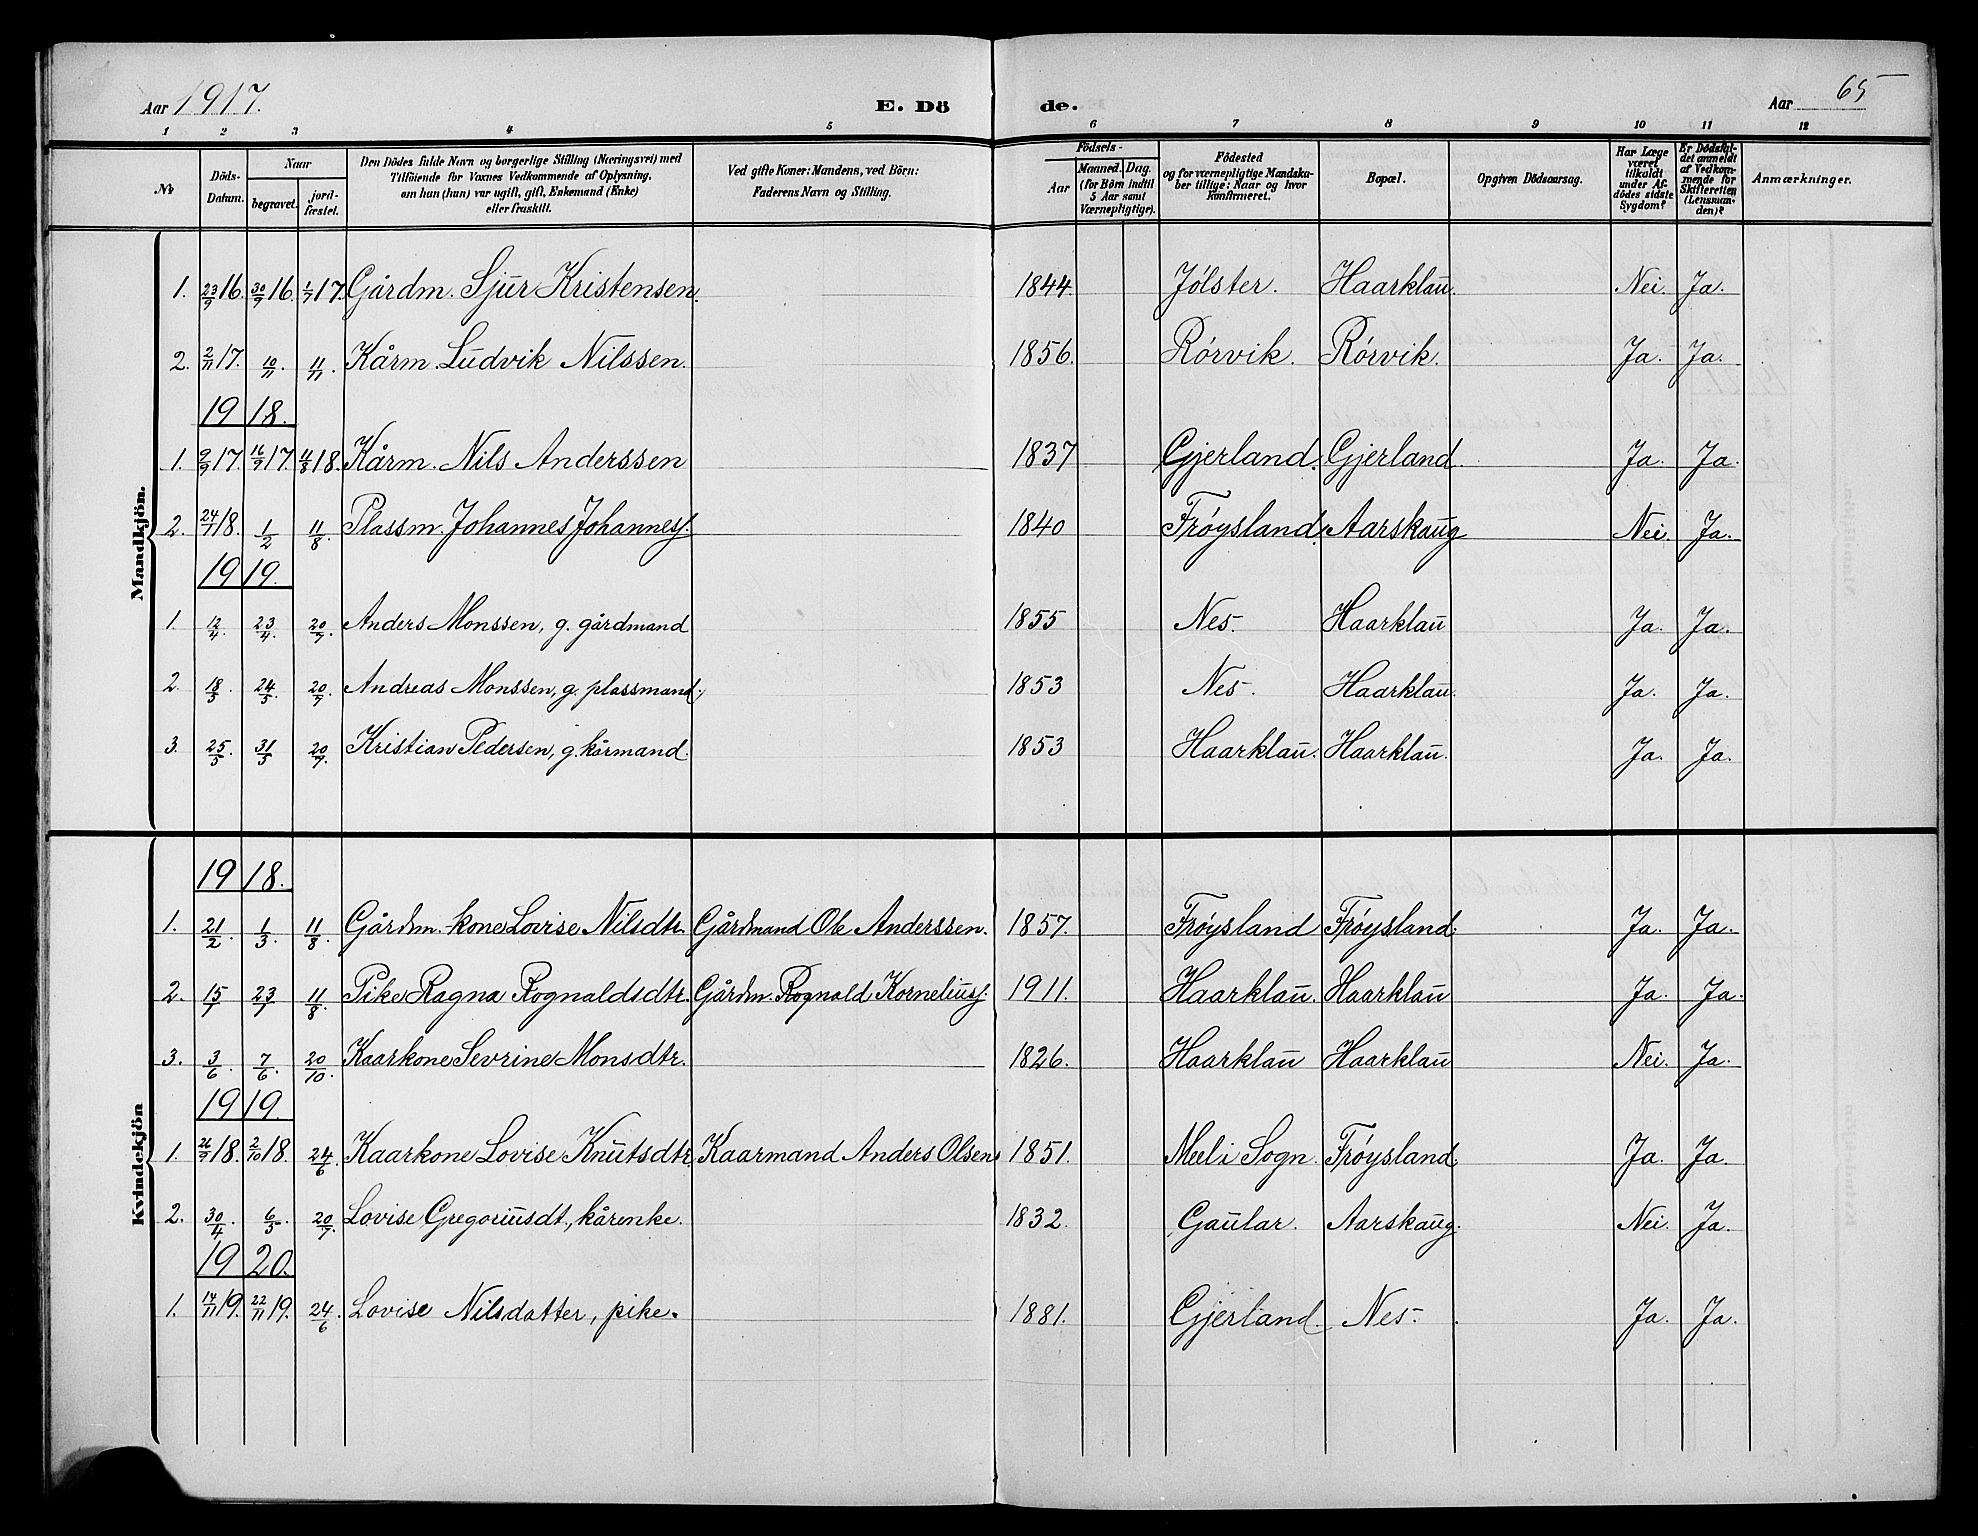 Aar 1917. E. Dö de. Aar 65
1 2 3 4 5 6 7 8 9 10 11 12
№ Döds-Datum. Naar begravet. jord-fæstet. Den Dödes fulde Navn og borgerlige Stilling (Næringsvei) med Tilföiende for Voxnes Vedkommende af Oplysning, om han (hun) var ugift, gift, Enkemand (Enke) eller fraskilt. Ved gifte Koner: Mandens, ved Börn: Faderens Navn og Stilling. Födsels- Aar Maaned. Dag. (for Börn indtil 5 Aar samt Værnepligtige). Födested og for værnepligtige Mandska-ber tillige: Naar og hvor konfirmeret. Bopæl. Opgiven Dödsaarsag. Har Læge været tilkaldt under Af-dödes sidste Sygdom? Er Dödsfal-det anmeldt af Vedkom-mende for Skifteretten (Lensman-den)? Anmærkninger.
Mandkjön.
1. 23/9 16. 30/9 16. 1/7 17. Gårdm. Sjur Kristensen. 1844. Jølster. Haarklau. Nei. Ja.
2. 2/11 17. 10/11. 11/11 Kårm. Ludvik Nilssen. 1856. Rørvik. Rørvik. Ja. Ja.
19 18.
1. 9/9 17. 16/9 17. 11/8 18. Kårm. Nils Anderssen 1837 Gjerland. Gjerland. Ja. Ja.
2. 24/1 18. 1/2 11/8 Plassm. Johannes Johanness. 1840 Frøysland. Aarskaug Nei. Ja.
19 19.
1. 12/4. 23/4. 20/9. Anders Monssen, g. gårdmand 1855 Nes. Haarklau Ja. Ja.
2. 18/5. 24/5. 20/9. Andreas Monssen, g. plassmand. 1853 Nes. Haarklau. Ja. Ja.
3. 25/5. 31/5 20/9. Kristian Pedersen, g. kårmand. 1853 Haarklau. Haarklau. Ja. Ja.
Kvindekjön
19 18.
1. 21/2. 1/3. 11/8. Gårdm.-kone Lovise Nilsdtr. Gårdmand Ole Anderssen. 1857. Frøysland Frøysland. Ja. Ja.
2. 15/7 23/7 11/8. Pike Ragna Rognaldsdtr. Gårdm. Rognald Korneliuss. 1911. Haarklau. Haarklau Ja. Ja.
3. 3/6. 7/6. 20/10. Kaarkone Sevrine Monsdtr. 1826. Haarklau Haarklau Nei. Ja.
19 19.
1. 26/9 18. 2/10 18. 24/6. Kaarkone Lovise Knutsdtr. Kaarmand Anders Olsen 1851. Mel i Sogn. Frøysland. Ja. Ja.
2. 30/4. 6/5. 20/9. Lovise Gregoriusdt., kårenke. 1832. Gaular. Aarskaug. Nei. Ja.
19 20.
1. 14/11 19. 22/11 19. 24/6. Lovise Nilsdatter, pike. 1881. Gjerland. Nes. Ja. Ja.